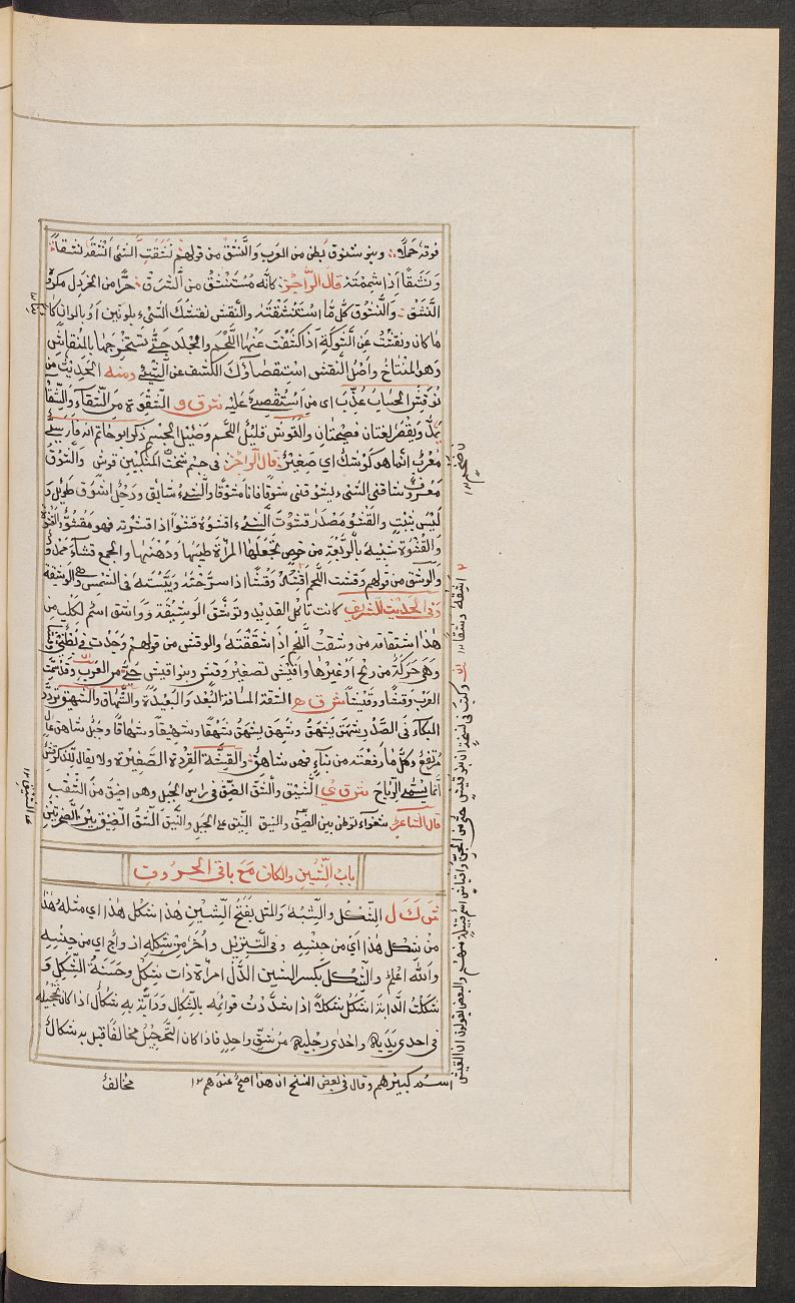 فوقه حملا ؞ وبنو شنوق بطن من العرب والنشق من قولهم نشقت الشئ انشقه نشقاً
ونشقاً اذا شممته قال الراجز كانه مستنشق من الشرق حرا من الخردل مكروه
النشق ؞ والنشوق كل ما استنشقته والنقش نقشك الشىء بلونين او بالوان كا
ما كان ونقشت عن الشوكة اذا كشفت عنها اللحم والجلد حتى تستخرجها بالمنقاش
وهو المنتاخ واصل النقش استقصاؤك الكشف عن الشئ ومنه الحديث من
نوقش الحساب عذب اى من استقصى عليه ش ق و الشقوة من الشقاء والشقا
يمد ويقصر لغتان فصيحتان والقوش قليل اللحم وضئيل الجسم ذكر ابو حاتم انه فارسى
معرب انما هو كوشك اى صغير قال الراجز فى جسم شخت المنكبين قوش والشوق
معروف شاقنى الشئ يشوقنى شوقا فانا مشوق والشئ شايق ورجل اشوق طويل و
ليس بثبت والقشو مصدر قشوت الشئ اقشوه قشوا اذا قشرته فهو مقشو
والقشوة شبيه بالربعة من خوص تجعل لها المرأة طيبها ودهنها والجمع قشاء ممدود
والوشق من قولهم وشقت اللحم اشقه وشقا اذا سرحته ويبسته فى الشمس وهى الوشيقة
وفى الحديث الشريف كانت تاكل القديد وتوشق الوشيقة وواشق اسم لكلب من
هذا اشتقاقه من وشقت اللحم اذا شققته والوقش من قولهم وجدت فى بطنى
وهى حركة من ريح او غيرها واقيش تصغير وقش وبنو اقيش حى من العرب وقد سمت
العرب وقشا ووقيشا ش ق ه الشقة المسافة البعد والبعيدة والشهاق والشهيق تردد
البكاء فى الصدر شهق يشهق وشهق يشهق شهقا وشهيقا وشهاقا وجبل شاهق عال
مرتفع وكل ما رفعته من بناء فهو شاهق والقشة القردة الصغيرة ولا يقال للذكر قش
انما يسمى الرباح ش ق ي الشيق والشق الضيق فى راس الجبل وهى اضيق من الشقب
قال الشاعر شغواء توطن بين الشيق والنيق النيق على الجبل والنيق الشق الضيق بين الصخرتين
باب الشين والكاف مع باقى الحروف
ش ك ل الشكل والشبه والمثل بفتح الشين هذا شكل هذا اى مثله هذا
من شكل هذا اى من جنسه وفى التنزيل واخر من شكله ازواج اى من جنسه
والله اعلم والشكل بكسر الشين الدل امراة ذات شكل وحسنة الشكل و
شكلت الدابة اشكل شكلا اذا شددت قوائمه بالشكال ودابة به شكال اذا كان تحجيله
فى احدى يديه واحدى رجليه من شق واحد فاذا كان التحجيل مخالفا قيل به شكال
مخالف
اشقه وشقا
وكتب فى نسخة ان بنو قيش حى من الجن واقياش اسم قبيلة منهم والبعض يقولون ان القيش
اسم كبيرهم وقال فى بعض النسخ ان هذا اصح عندهم ١٢